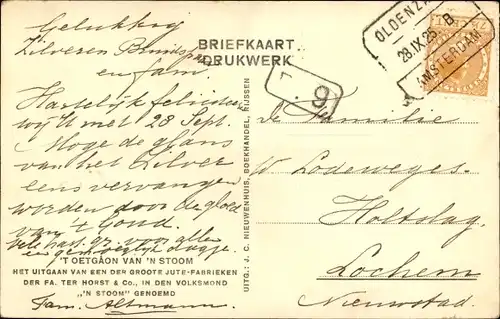 Gelukkig
Zilveren Bruidspaar
en fam.
Hartelijk feliciteren
wij U met 28 Sept.
Moge de glans
van het Zilver
eens vervangen
worden door de gloed
van 't Goud.
Vele hart. gr. voor allen
en genoeglijk dagje.
Fam. Altmann.
BRIEFKAART
DRUKWERK
'T OETGÂON VAN 'N STOOM
HET UITGAAN VAN EEN DER GROOTE JUTE-FABRIEKEN
DER FA. TER HORST & Co., IN DEN VOLKSMOND
„'N STOOM" GENOEMD
UITG.: J. C. NIEUWENHUIS, BOEKHANDEL, RIJSSEN
OLDENZ
28.IX.25 B
AMSTERDAM
9
De Familie
W Lodeweges.
Holtslag.
Lochem
Nieuwstad.